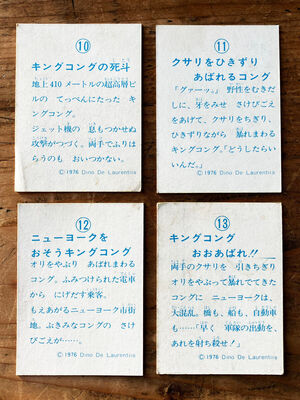 10
キングコングの死斗
地上410メートルの超高層ビ
ルの てっぺんにたった キ
ングコング。
ジェット機の 息もつかせぬ
攻撃がつづく。両手でふりは
らうのも おいつかない。
©1976 Dino De Laurentiis
11
クサリをひきずり
あばれるコング
「グァーッ。」 野性をむきだ
しに、牙をみせ さけびごえ
をあげて、クサリをちぎり、
ひきずりながら 暴れまわる
キングコング。「どうしたらい
いんだ。」
©1976 Dino De Laurentiis
12
ニューヨークを
おそうキングコング
オリをやぶり あばれまわる
コング。ふみつけられた電車
から にげだす乗客。
もえあがるニューヨーク市街
地。ぶきみなコングの さけ
びごえが……。
©1976 Dino De Laurentiis
13
キングコング
おおあばれ!!
両手のクサリを 引きちぎり
オリをやぶって暴れでてきた
コングに ニューヨークは、
大混乱。橋も、船も、自動車
も……「早く 軍隊の出動を、
あれを射ち殺せ!」
©1976 Dino De Laurentiis